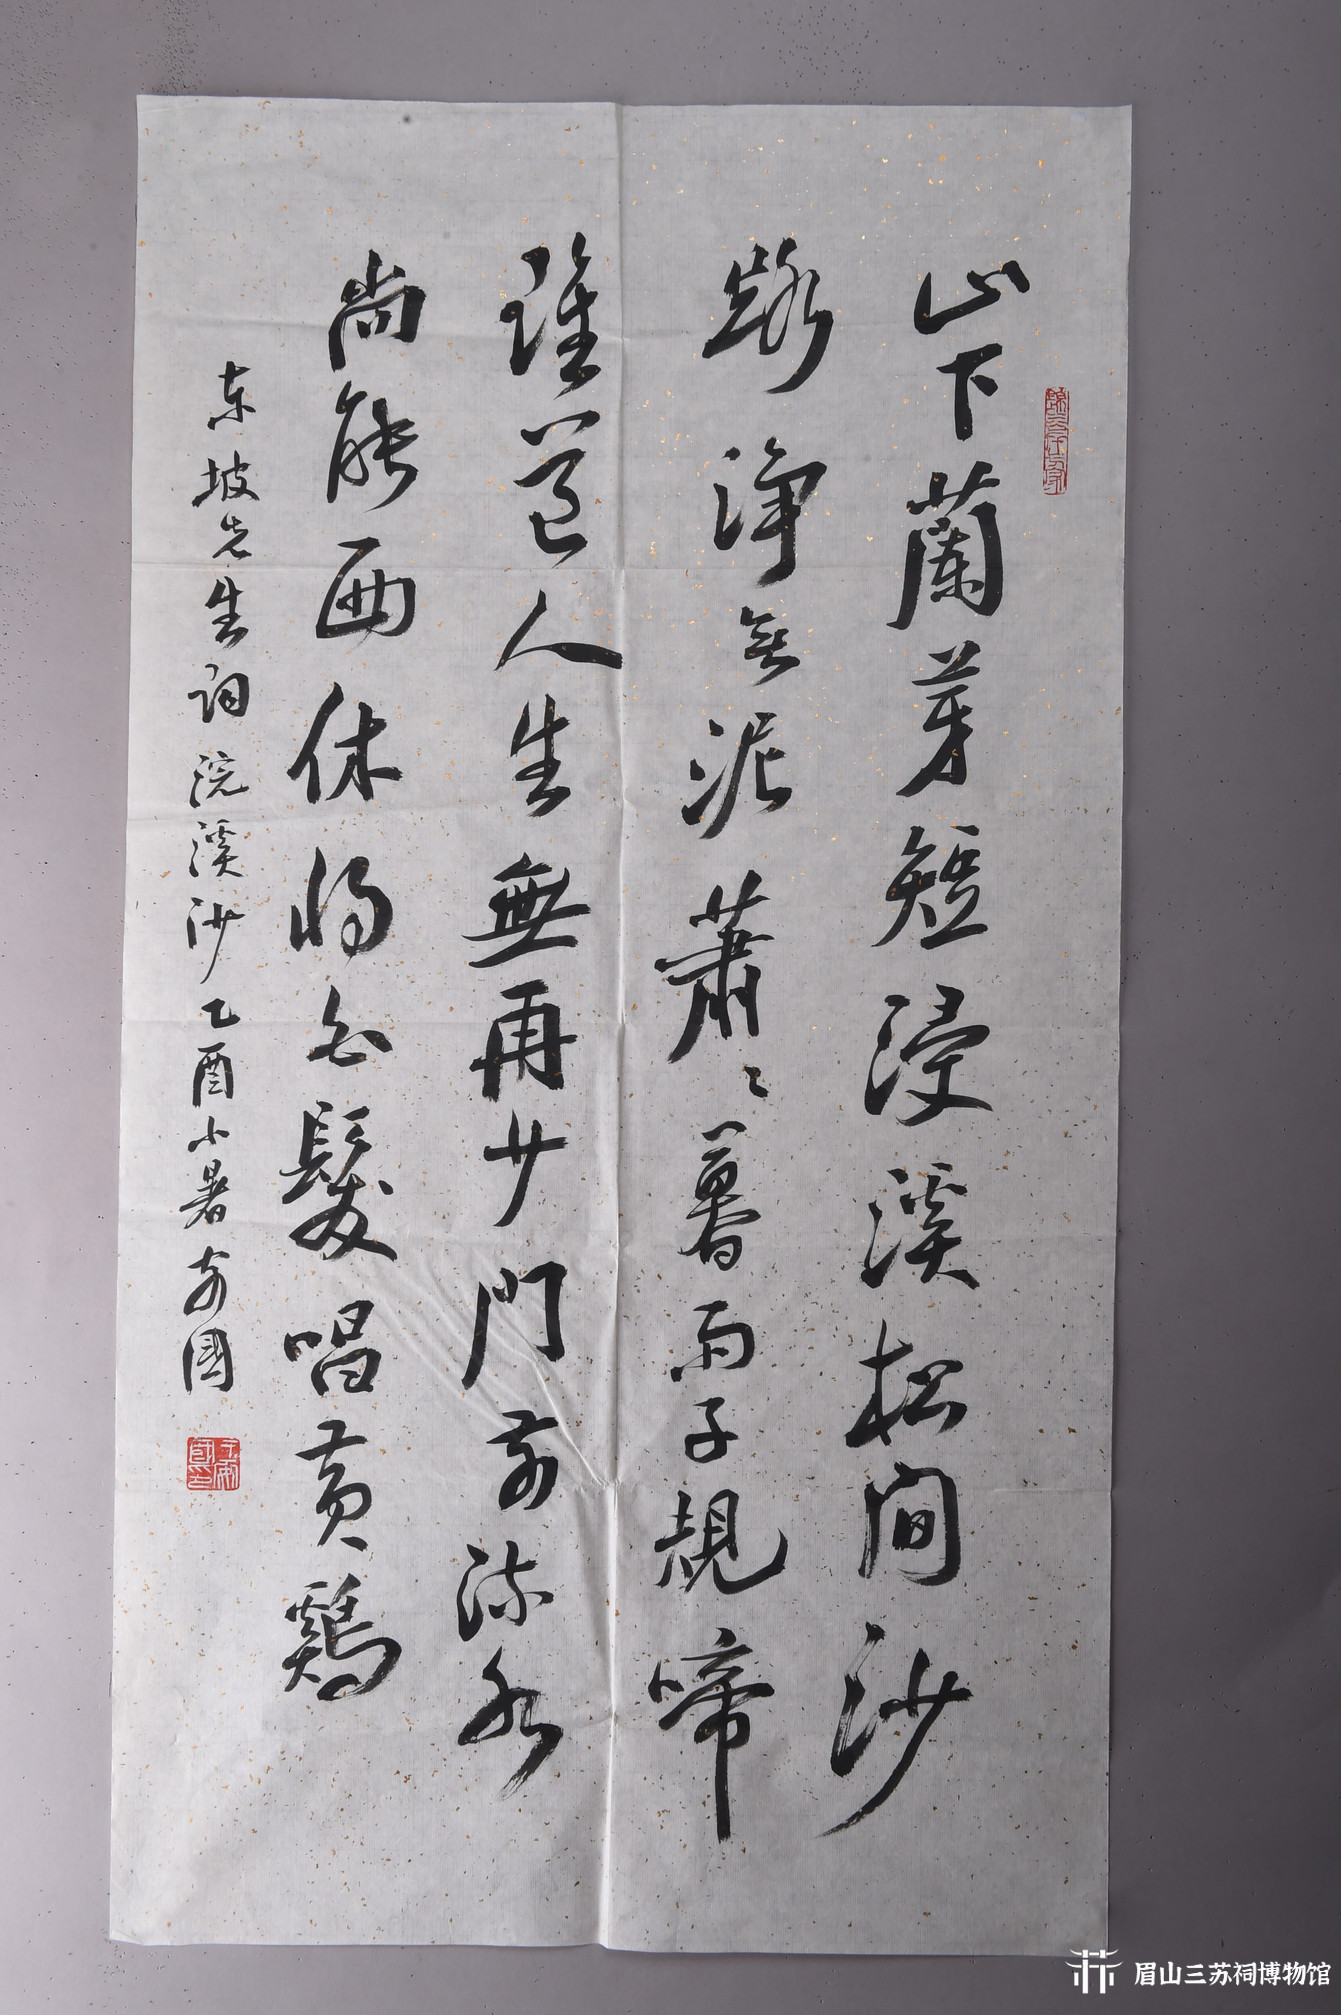 山下蘭芽短浸溪松間沙
路淨無泥蕭〻暮雨子規啼
誰道人生無再少門前流水
尚能西休將白髮唱黄鷄
东坡先生词浣溪沙乙酉小暑
眉山三苏祠博物馆